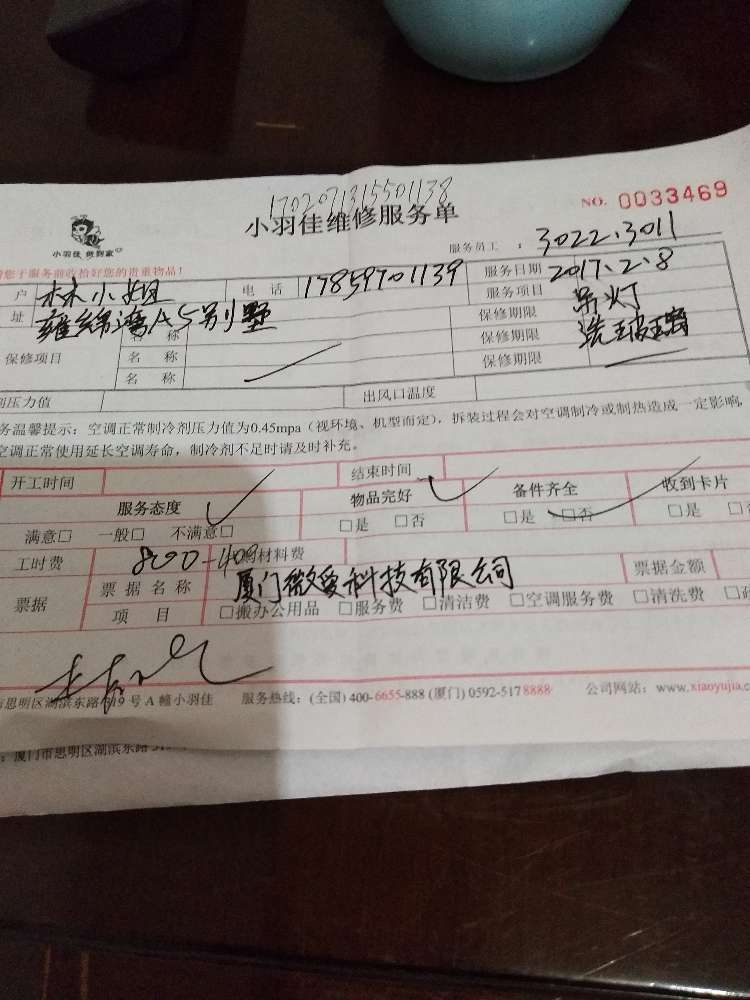 1702071315501138
NO. 0033469
小羽佳维修服务单
小羽佳 做到家
服务员工 : 3022.3011
您于服务前收拾好您的贵重物品!
户 林小姐 电话 17859701139 服务日期 2017.2.8
址 雍绵湾A5别墅 服务项目 吊灯
名称 保修期限 洗玻璃
保修项目 名称 保修期限
名称 保修期限
剂压力值 出风口温度
务温馨提示:空调正常制冷剂压力值为0.45mpa(视环境、机型而定),拆装过程会对空调制冷或制热造成一定影响,
空调正常使用延长空调寿命,制冷剂不足时请及时补充。
开工时间 结束时间
服务态度 物品完好 备件齐全 收到卡片
满意□ 一般□ 不满意□ □是 □否 □是 □否 □是 □
工时费 800-400 材料费
票据 票据名称 厦门微爱科技有限公司 票据金额
项目 □搬办公用品 □服务费 □清洁费 □空调服务费 □清洗费
市思明区湖滨东路319号A幢小羽佳 服务热线:(全国)400-6655-888 (厦门) 0592-5178888 公司网站:www.xiaoyujia.c
:厦门市思明区湖滨东路